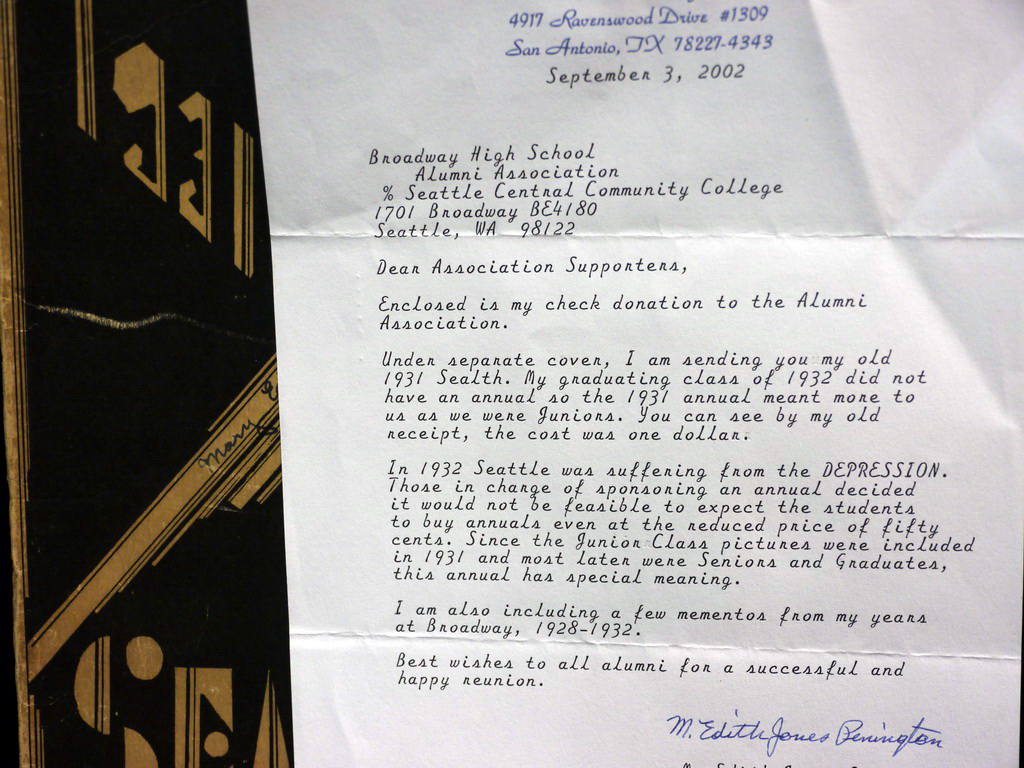 4917 Ravenswood Drive #1309
San Antonio, TX 78227-4343
September 3, 2002
Broadway High School
Alumni Association
% Seattle Central Community College
1701 Broadway BE4180
Seattle, WA 98122
Dear Association Supporters,
Enclosed is my check donation to the Alumni
Association.
Under separate cover, I am sending you my old
1931 Sealth. My graduating class of 1932 did not
have an annual so the 1931 annual meant more to
us as we were Juniors. You can see by my old
receipt, the cost was one dollar.
In 1932 Seattle was suffering from the DEPRESSION.
Those in charge of sponsoring an annual decided
it would not be feasible to expect the students
to buy annuals even at the reduced price of fifty
cents. Since the Junior Class pictures were included
in 1931 and most later were Seniors and Graduates,
this annual has special meaning.
I am also including a few mementos from my years
at Broadway, 1928-1932.
Best wishes to all alumni for a successful and
happy reunion.
M. Edith Jones Penington
1931
Mary E
SEA